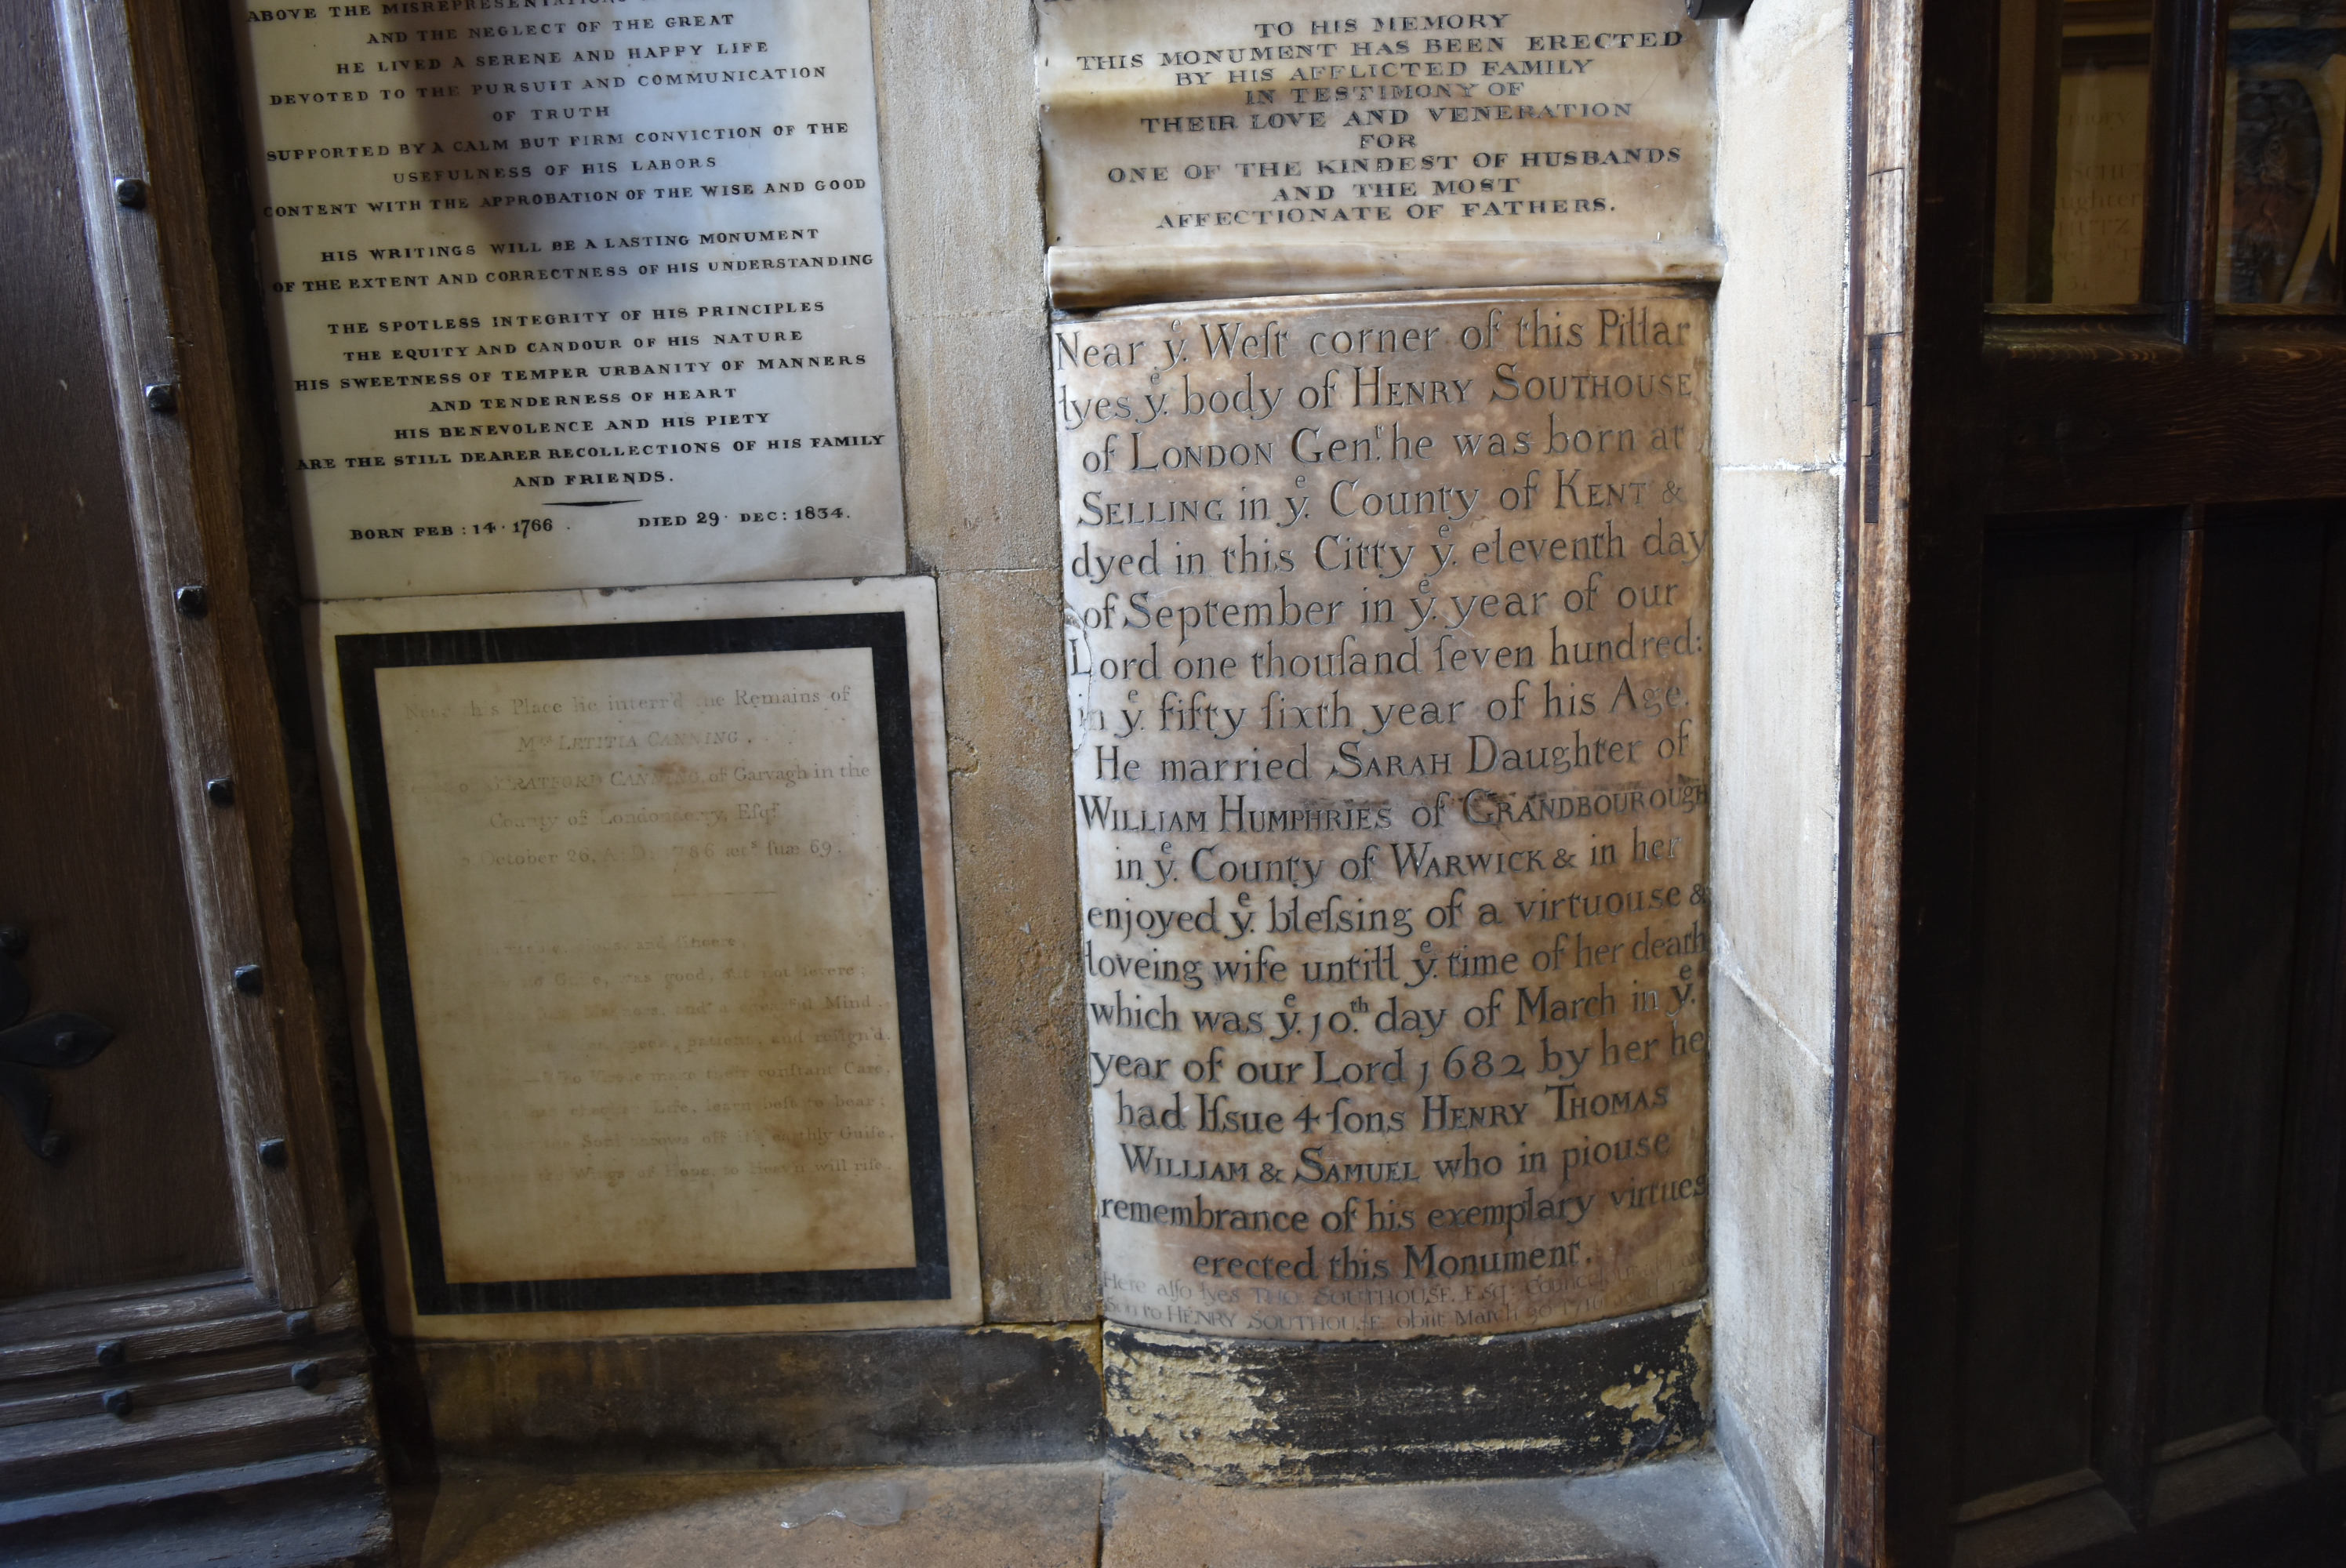 ABOVE THE MISREPRESENTATIONS
AND THE NEGLECT OF THE GREAT
HE LIVED A SERENE AND HAPPY LIFE
DEVOTED TO THE PURSUIT AND COMMUNICATION
OF TRUTH
SUPPORTED BY A CALM BUT FIRM CONVICTION OF THE
USEFULNESS OF HIS LABORS
CONTENT WITH THE APPROBATION OF THE WISE AND GOOD
HIS WRITINGS WILL BE A LASTING MONUMENT
OF THE EXTENT AND CORRECTNESS OF HIS UNDERSTANDING
THE SPOTLESS INTEGRITY OF HIS PRINCIPLES
THE EQUITY AND CANDOUR OF HIS NATURE
HIS SWEETNESS OF TEMPER URBANITY OF MANNERS
AND TENDERNESS OF HEART
HIS BENEVOLENCE AND HIS PIETY
ARE THE STILL DEARER RECOLLECTIONS OF HIS FAMILY
AND FRIENDS.
BORN FEB: 14· 1766 . DIED 29· DEC: 1834.
Near this Place lie interr'd the Remains of
Mrs LETITIA CANNING,
STRATFORD CANNING, of Garvagh in the
County of Londonderry, Eſqr
October 26, A:D: 1786 æts ſuæ 69.
and ſincere,
good, not ſevere;
and Mind.
meek, patient, and reſign'd.
make their conſtant Care,
Life, learn beſt to bear;
the Soul throws off earthly Guiſe,
Wings of Hope, to Heav'n will riſe.
TO HIS MEMORY
THIS MONUMENT HAS BEEN ERECTED
BY HIS AFFLICTED FAMILY
IN TESTIMONY OF
THEIR LOVE AND VENERATION
FOR
ONE OF THE KINDEST OF HUSBANDS
AND THE MOST
AFFECTIONATE OF FATHERS.
Near ye. Weſt corner of this Pillar
lyes ye. body of HENRY SOUTHOUSE
of LONDON Gent. he was born at
SELLING in ye. County of KENT &
dyed in this Citty ye. eleventh day
of September in ye. year of our
Lord one thouſand ſeven hundred:
in ye. fifty ſixth year of his Age.
He married SARAH Daughter of
WILLIAM HUMPHRIES of GRANDBOUROUGH
in ye. County of WARWICK & in her
enjoyed ye. bleſsing of a virtuouse &
loveing wife untill ye. time of her death
which was ye. 10.th day of March in ye.
year of our Lord 1682 by her he
had Iſsue 4 ſons HENRY THOMAS
WILLIAM & SAMUEL who in piouse
remembrance of his exemplary virtues
erected this Monument.
Here alſo lyes THO: SOUTHOUSE, Esqr.
Son to HENRY SOUTHOUSE. obiit March 30 1716